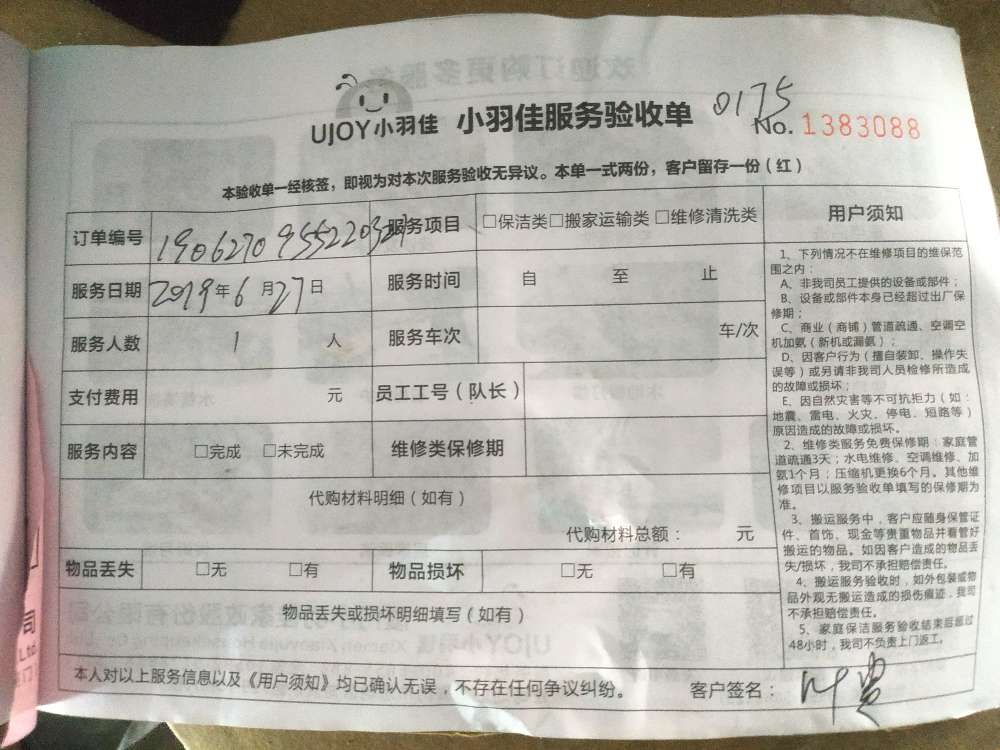 UJOY小羽佳 小羽佳服务验收单 0175
No. 1383088
本验收单一经核签，即视为对本次服务验收无异议。本单一式两份，客户留存一份（红）
订单编号 服务项目 □保洁类□搬家运输类 □维修清洗类
服务日期 2019年6月27日 服务时间 自 至 止
服务人数 1 人 服务车次 车/次
支付费用 元 员工工号（队长）
服务内容 □完成 □未完成 维修类保修期
代购材料明细（如有）
代购材料总额： 元
物品丢失 □无 □有 物品损坏 □无 □有
物品丢失或损坏明细填写（如有）
本人对以上服务信息以及《用户须知》均已确认无误，不存在任何争议纠纷。 客户签名：
用户须知
1、下列情况不在维修项目的维保范
围之内：
A、非我司员工提供的设备或部件；
B、设备或部件本身已经超过出厂保
修期；
C、商业（商铺）管道疏通、空调空
机加氨（新机或漏氨）；
D、因客户行为（擅自装卸、操作失
误等）或另请非我司人员检修所造成
的故障或损坏；
E、因自然灾害等不可抗拒力（如：
地震、雷电、火灾、停电、短路等）
原因造成的故障或损坏。
2、维修类服务免费保修期：家庭管
道疏通3天；水电维修、空调维修、加
氨1个月；压缩机更换6个月。其他维
修项目以服务验收单填写的保修期为
准。
3、搬运服务中，客户应随身保管证
件、首饰、现金等贵重物品并看管好
搬运的物品。如因客户造成的物品丢
失/损坏，我司不承担赔偿责任。
4、搬运服务验收时，如外包装或物
品外观无搬运造成的损伤痕迹，我司
不承担赔偿责任。
5、家庭保洁服务验收结束后超过
48小时，我司不负责上门返工。
司
Ltd.